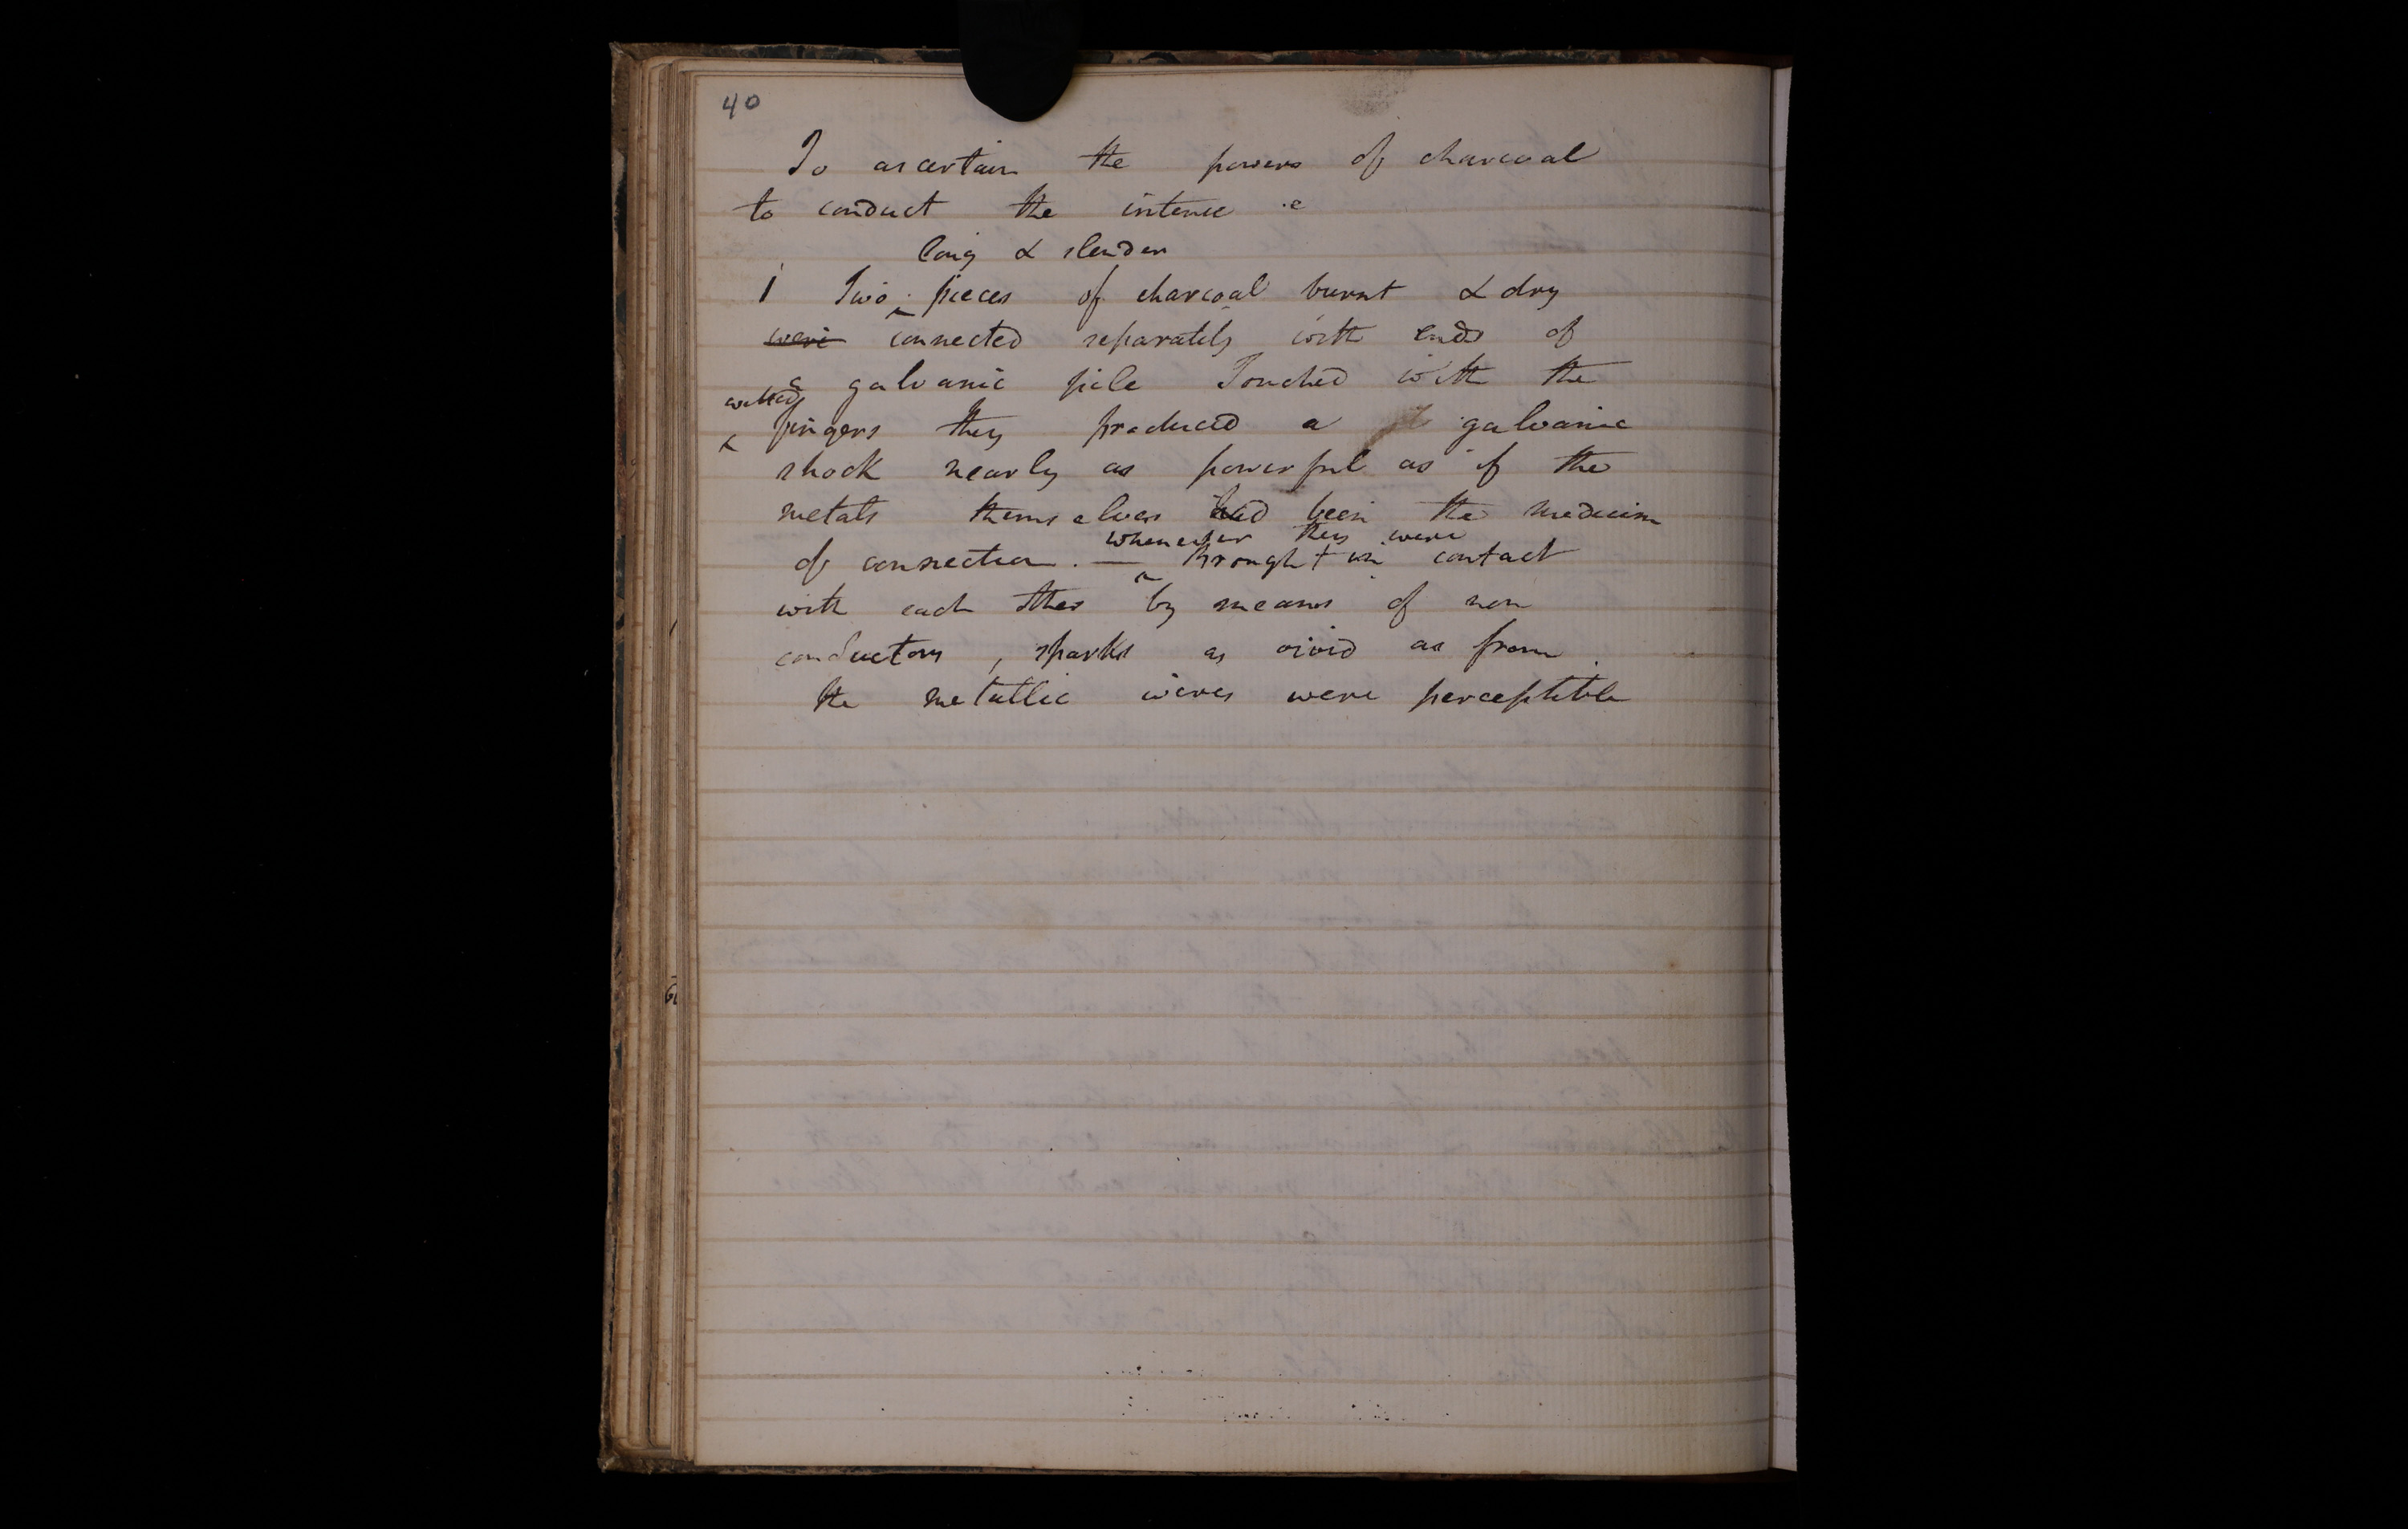 40
To ascertain the powers of charcoal
to conduct the intense e
long & slender
1 Two pieces of charcoal burnt & dry
were connected separately with ends of
a galvanic pile Touched with the
wetted
fingers they produced a galvanic
shock nearly as powerful as if the
metals themselves had been the medium
whenever they were
of connection. — Brought in contact
with each other by means of non
conductors, sparks as vivid as from
the metallic wires were perceptible